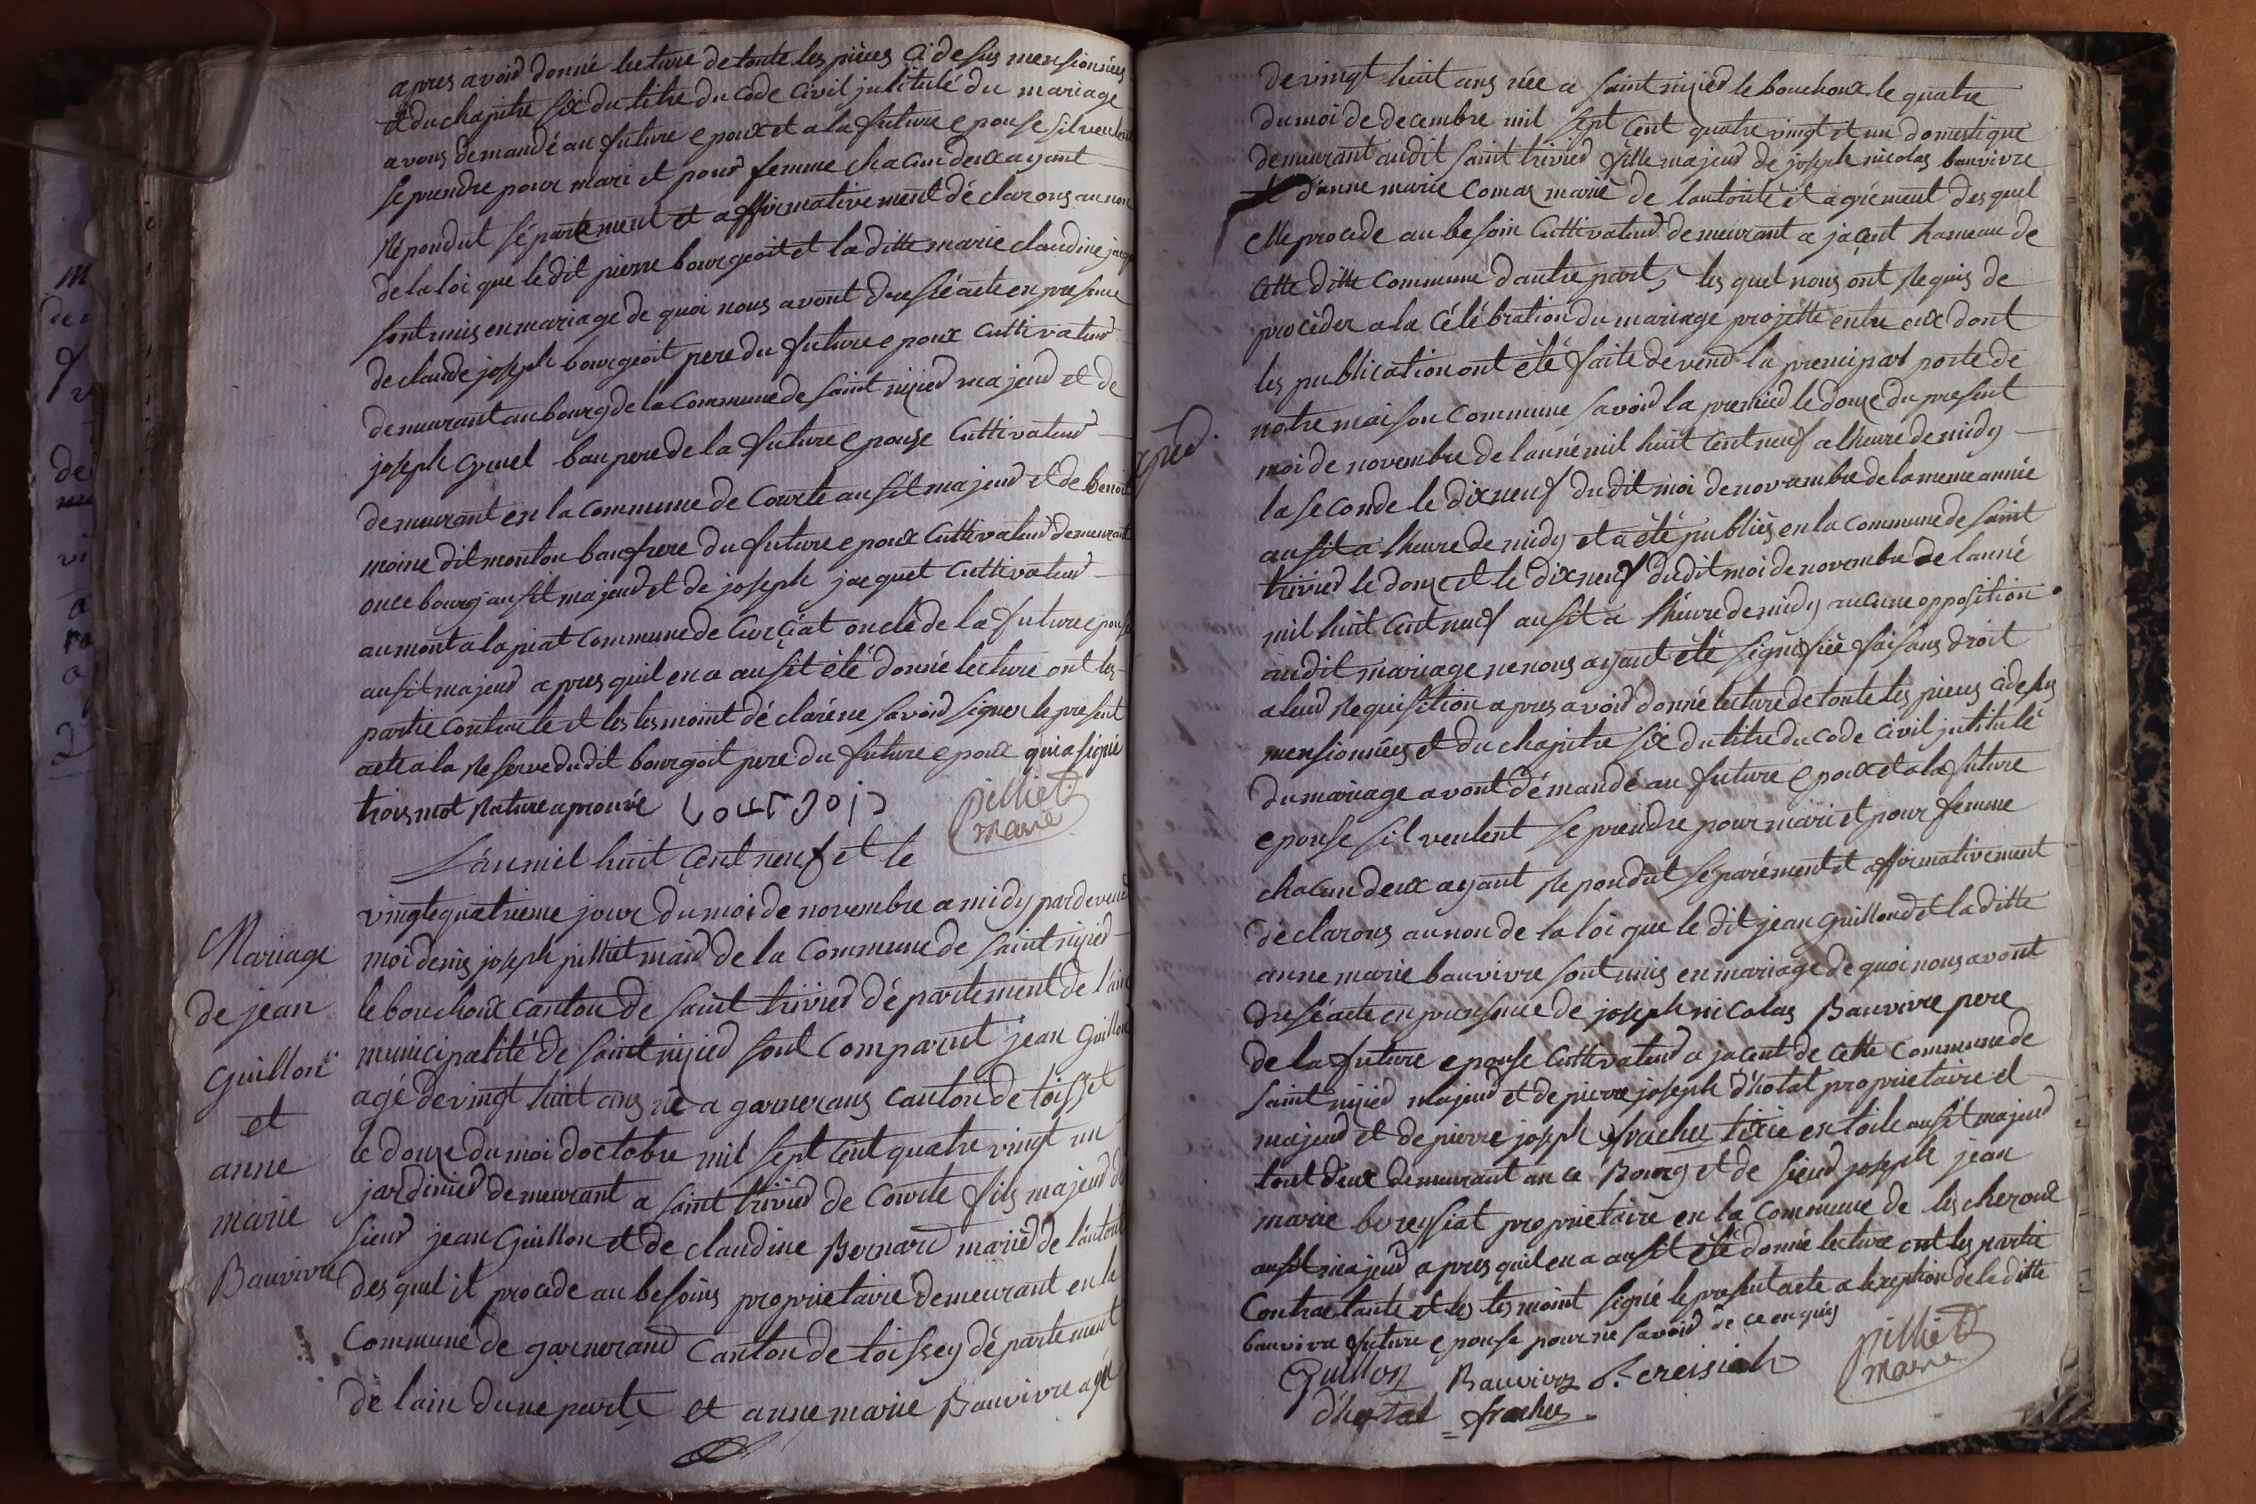 apres avoir donné lecture de toute les pièces ci desus mensionnées
et du chapitre six du titre du Code Civil jntitulé du mariage
avons demandé au future epoux et a la future epouse sil veulent
se prendre pour mari et pour femme chacun deux ayant
Répondut séparément et affirmativement déclarons au nom
de la loi que le dit pierre bourgeoit et la ditte marie claudine
sont unis en mariage de quoi nous avont dressé acte en presence
de claude joseph bourgeoit pere du future epoux Cultivateur
demeurant au bourg de la Commune de saint nijied majeur et de
joseph gruel baupere de la future epouse Cultivateur
demeurant en la commune de Courte ausit majeur et de benoit
moine dit monton baufrere du future epoux Cultivateur demeurant
once bourg ausit majeur et de joseph jacquet Cultivateur
au mont a la piat Commune de Curciat oncle de la future epouse
ausit majeur apres quil en a ausit été donnée lecture ont les
partie contracte et les tesmoint déclaréne savoir signer le present
acte a la Reserve dudit bourgoit pere du future epoux qui a signé
trois mot Rature aprouvé bourjois pilliet
maire
L'an mil huit Cent neuf et le
vingtequatrieme jour du moi de novembre a midy pardevend
moi denis joseph pilliet maire de la Commune de saint nijied
le bouchoux canton de saint trivier département de l'ain
municipalité de saint nijied sont Comparut jean Guillon
agé de vingt huit ans né a garnerans Canton de toisset
le douze du moi doctobre mil sept Cent quatre vingt un
jardinier demeurant a saint trivier de Courte fils majeur de
sieur jean Guillon et de claudine Bernard marié de l'autorité
des quel il procede au besoins proprietaire demeurant en la
Commune de garnerand Canton de toissey département
de lain dune parte et anne marie Bauvivre agée
Mariage
de jean
Guillon
et
anne
marie
Bauvivre
de vingt huit ans née a saint nijied le bouchoux le quatre
du moi de decembre mil sept Cent quatre vingt et un domestique
demeurant audit saint trivier fille majeur de joseph nicolas bauvivre
et d'anne marie Comas marié de lautorité et agrément des quel
elle procede au besoin Cultivateur demeurant a jacent hameau de
Cette ditte Commune dautre part, les quel nous ont Requis de
procéder a la Célébration du mariage projetté entre eux dont
les publication ont été faite devend la principal porte de
notre maison Commune savoir la premier le douze du present
moi de novembre de lanné mil huit Cent neuf a lheure de midy
la seconde le dixneuf dudit moi de novembre de la meme année
ausit a lheure de midy et a été publiés en la commune de saint
trivier le douze et le dixneuf dudit moi de novembre de lanné
mil huit Cent neuf ausit a lheure de midy aucune opposition
audit mariage ne nous ayant été signifiée faisans droit
a leur Requisition apres avoir donné lecture de toute les pieces ci desus
mensionnées et du chapitre six du titre du Code Civil jntitulé
du mariage avont démandé au future epoux et a la future
epouse sil veulent se prendre pour mari et pour femme
chacun deux ayant Répondut séparément et affirmativement
déclarons au non de la loi que le dit jean guillond et la ditte
anne marie bauvivre sont unis en mariage de quoi nous avont
dressé acte en presence de joseph nicolas Bauvivre pere
de la future epouse Cultivateur a jacent de Cette Commune de
saint nijied majeur et de pierre joseph d'hotal proprietaire et
majeur et de pierre joseph frachet tixie en toile ausit majeur
tout deux demeurant en ce Bourg et de sieur joseph jean
marie bereysiat proprietaire en la Commune de lescheroux
ausit majeur apres quil en a ausit été donné lecture ont les partie
Contractante et les tesmoint signé le present acte a lexeption de la ditte
bauvivre future epouse pour ne savoir de ce enquis
Guillon Bauvivre Bereisiat pilliet
maire
d'hotal frachet